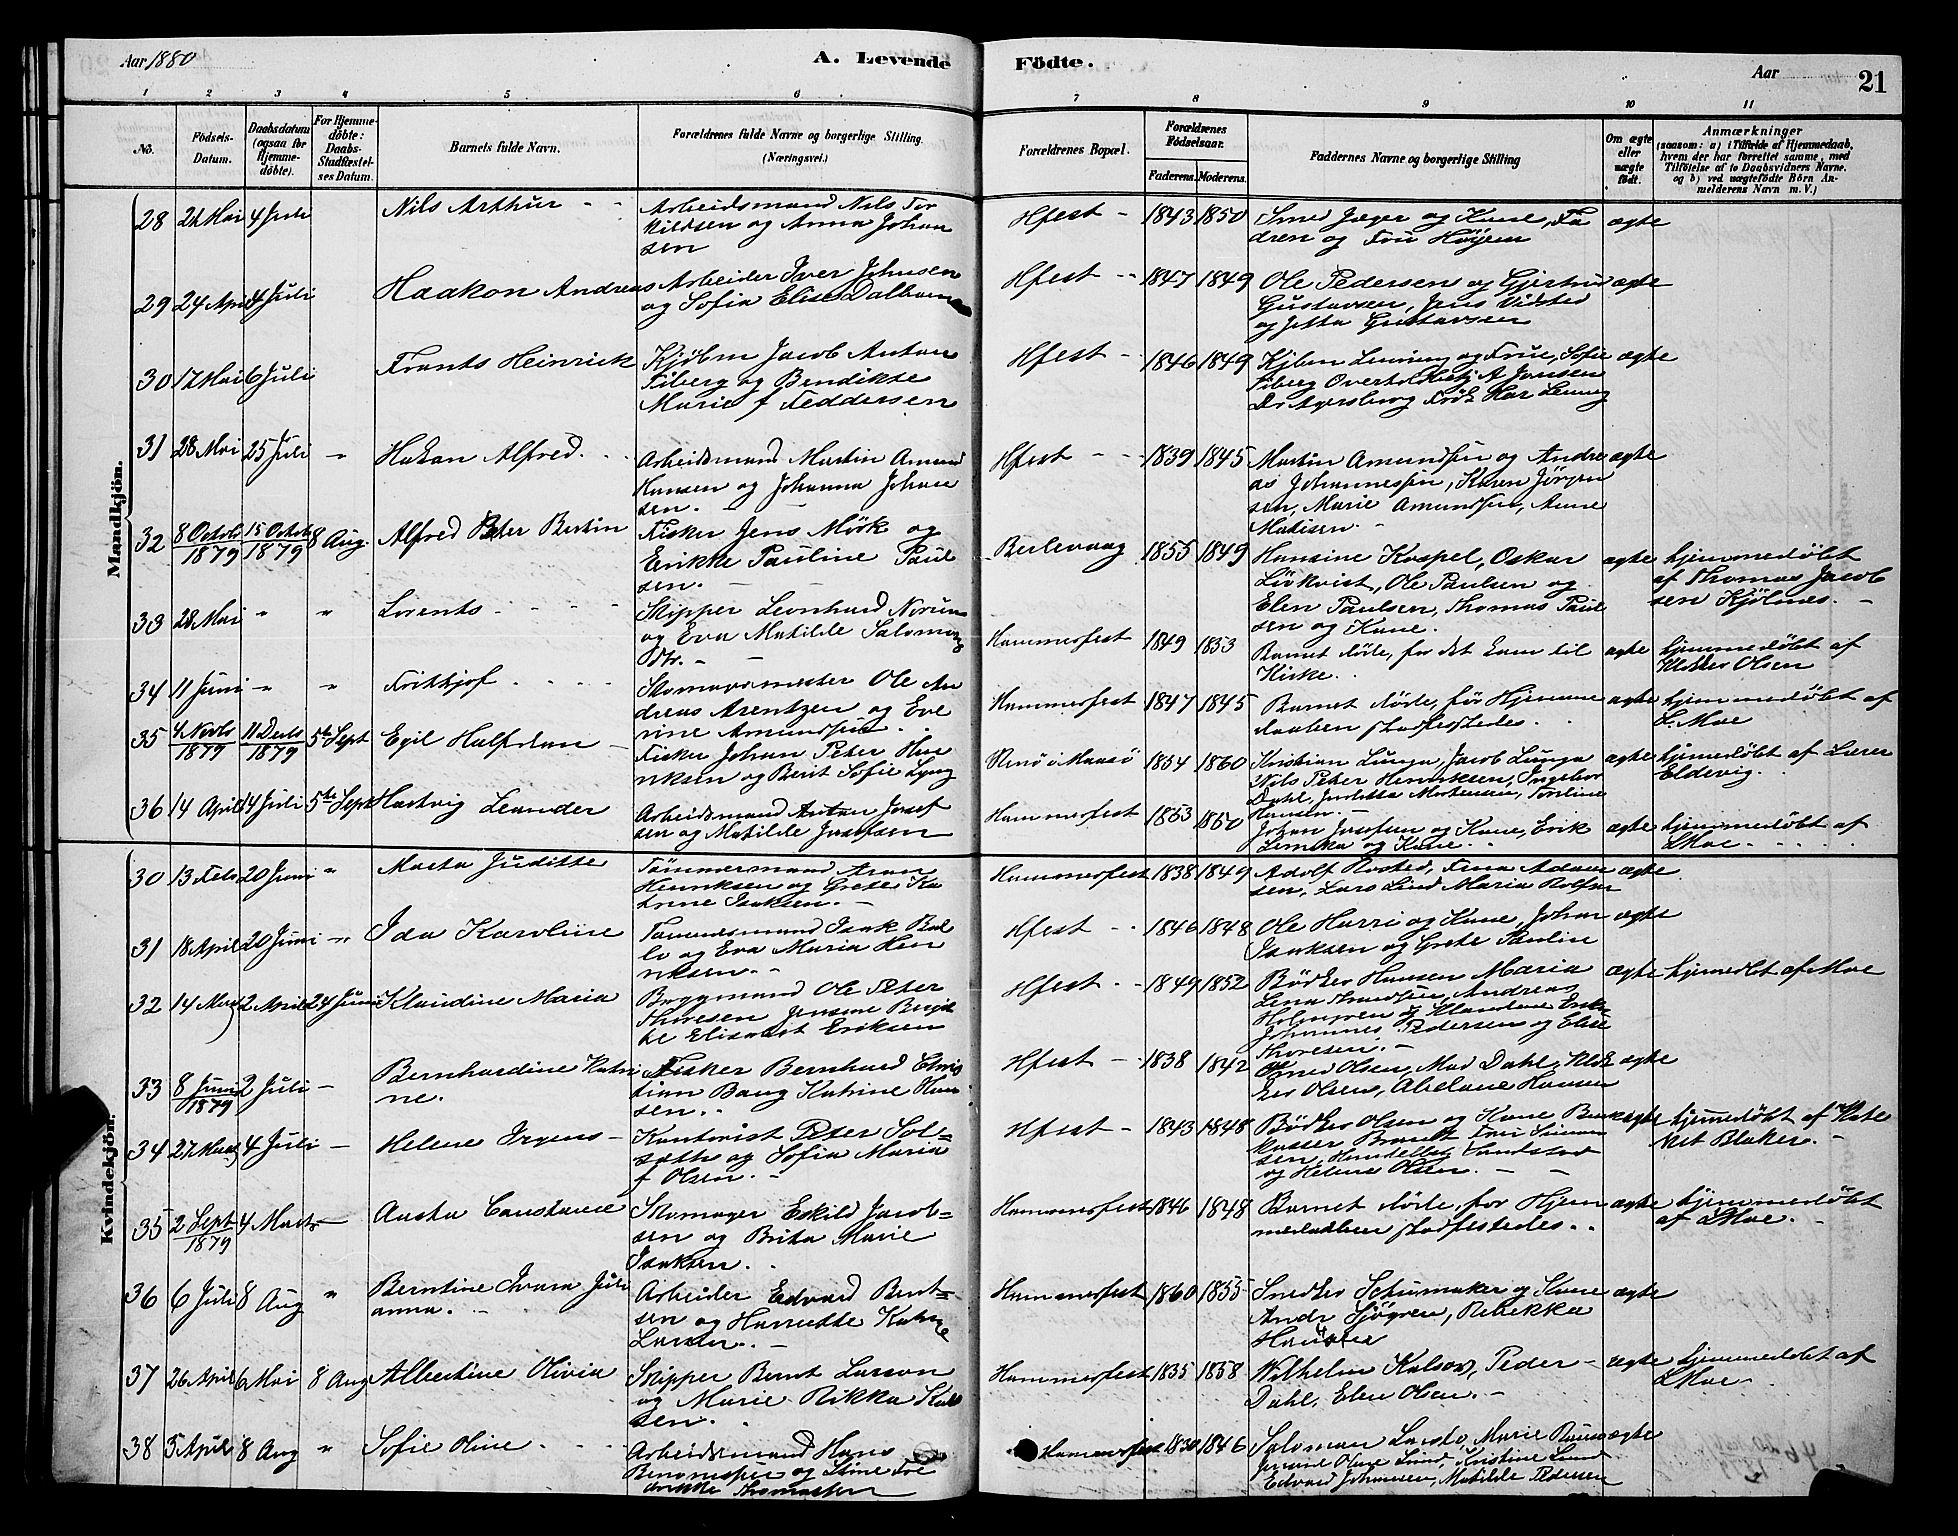 Aar 1880
A. Levende
Födte.
Aar
21
1 2 3 4 5 6 7 8 9 10 11
No.
Födsels-
Datum.
Daabsdatum
(ogsaa for
Hjemme-
döbte).
For Hjemme-
döbte:
Daabs-
Stadfæstel-
ses Datum.
Barnets fulde Navn.
Forældrenes fulde Navne og borgerlige Stilling.
(Næringsvei.)
Forældrenes Bopæl.
Forældrenes
Födselsaar.
Faderens. Moderens.
Faddernes Navne og borgerlige Stilling
Om ægte
eller
uægte
födt.
Anmærkninger
(saasom: a) i Tilfælde af Hjemmedaab,
hvem der har forrettet samme, med
Tilföielse af to Daabsvidners Navne.
og b) ved uægtefödte Börn An-
melderens Navn m. V.)
Mandkjön.
28 21 Mai 4 Juli Nils Arthur - - Arbeidsmand Nils Tor
kildsen og Anna Johan
sen
Hfest - 1843 1850 Smed Jæger og Kone, Fa
dren og Fru Höyem
ægte
29 24 April 4 Juli Haakon Andreas Arbeider Iver Johnsen
og Sofia Elise Dalbom
Hfest - 1847 1849 Ole Pedersen og Gjertrud
Gustavsen, Jens Vidsted
og Jetta Gustavsen
ægte
30 17 Mai 6 Juli Frants Heinrich Kjöbm Jacob Anton
Fiberg og Bendikte
Marie f Feddersen
Hfest - 1846 1849 Kjbm og Frue, Sofie
Fiberg A Jonsen
ægte
31 28 Mai 25 Juli " Hakon Alfred. - Arbeidsmand Martin Amund
Hansen og Johanna Johan
sen.
Hfest - - 1839 1845 Martin Amundsen og Andre
as Johannessen, Karen Jörgen
sen, Marie Amundsen, Anne
Matisen.
ægte
32 8 Octob 1879 15 Octob 1879 8 Aug. Alfred Peter Bertin Fisker Jens Mörk og
Erikke Pauline Paul
sen.
Berlevaag 1855 1849 Hansine Kospel, Oskar
Lövkvist, Ole Paulsen og
Elen Paulsen, Thomas Paul
sen og Kone.
ægte hjemmedöbt
af Thomas Jacob
sen Kjölnes.
33 28 Mai " " Lorents - - - - Skipper Leonhard Norum
og Eva Matilde Salomons
dtr.
Hammerfest 1849 1853 Barnet döde, för det kom til
Kirke.
ægte hjemmedöbt af
Klokker Olsen
34 11 Juni " " Frithjof - - - - Skomagermester Ole An
dreas Arentzen og Eve
rine Amundsen.
Hammerfest 1847 1845 Barnet döde, för Hjemme
daaben stadfestedes.
ægte hjemmedöbt af
L. Moe
35 4 Novb 1879 11 Decb 1879 5te Sept Egil Halfdan - Fisker Johan Peter Hen
riksen og Berit Sofie Lyng
i Maasö 1854 1860 Kristian Lunga, Jacob Lunga
Nils Peter Henriksen, Ingebor
Dahl, Mortensen,
Hansen.
ægte hjemedöbt af Lærer
Eldevig.
36 14 April 4 Juli 5te Sept Hartvig Leander Arbeidsmand Anton Josef
sen og Matilde Josefsen
Hammerfest 1853 1850 Johan Josefsen og Kone, Erik
og Kone.
ægte hjemmedöbt af
LMoe.
Kvindekjön.
30 13 Feb 20 Juni " Marta Juditte Tömmermand Aron
Henriksen og Grete Ka
trine Isaksen.
Hammerfest 1838 1849 Adolf Rosted, Fina Adam
sen, Lars Lind Maria Rolfsen
ægte
31 18 April 20 Juni " Ida Karoline Isak Bal
lo og Eva Maria Hen
riksen.
Hfest - 1846 1848 Ole Harri og Kone, Johan
Isaksen og Grete Paulin
ægte
32 14 Mars 2 April 24 Juni Klaudine Maria Byggmand Ole Peter
Thoresen Jensine Birgit
te Elisabet Eriksen
Hfest - 1849 1852 Bödker Hansen Maria
Lena Andreas
Holmgren og Klaudine
Johannes Pedersen og Elise
Thoresen.
ægte hjemedbt af Moe
33 8 Juni 1879 2 Juli - Bernhardine Katri
ne.
Fisker Bernhard Chris
tian Bang Katrine Han
sen.
Hfest - 1838 1842 Smed Olsen, Mad Dahl, Klok
ker Olsen, Abelone Hansen
ægte
34 27 Mars 4 Juli - Helene Irgens - Kontorist Peter Sol-
sæth og Sofia Maria
f Olsen.
Hfest - 1843 1848 Bödker Olsen og Kone
Brandt Frue Simon
sen, Handelbtj Sandstad
og Helene Olsen.
ægte hjemmedöbt af
Blaker.
35 2 Sept 1879 4 Marts - Aasta Constanse Skomager Eskild Jacob-
sen og Brita Marie
Isaksen.
Hammerfest 1846 1848 Barnet döde, för Hjem
medaaben stadfestedes.
ægte hjemmedöbt
af LMoe.
36 6 Juli 8 Aug " Berntine Ivara Juli
anna.
Arbeider Edvard Bent-
sen og Henriette Katrine
Larsen.
Hammerfest 1860 1855 Snedker Schumaker og Kone
Andr Sjögren, Rebekka
ægte
37 26 April 6 Mai 8 Aug Albertine Olivia Skipper Bernt Larsen
og Marie Rikka Karl
sen.
Hammerfest 1835 1858 Wilhelm Kalsov, Peder
Dahl, Elen Olsen.
ægte hjemmedöbt af
LMoe.
38 5 April 8 Aug " Sofie Oline - - - Arbeidsmand Hans
og Stine Fre
drikke Thomassen
Hammerfest 1830 1846 Salomon Marie
Oline Lind, Kristine Lund
Edvard Johannesen, Matilde Pedersen
ægte